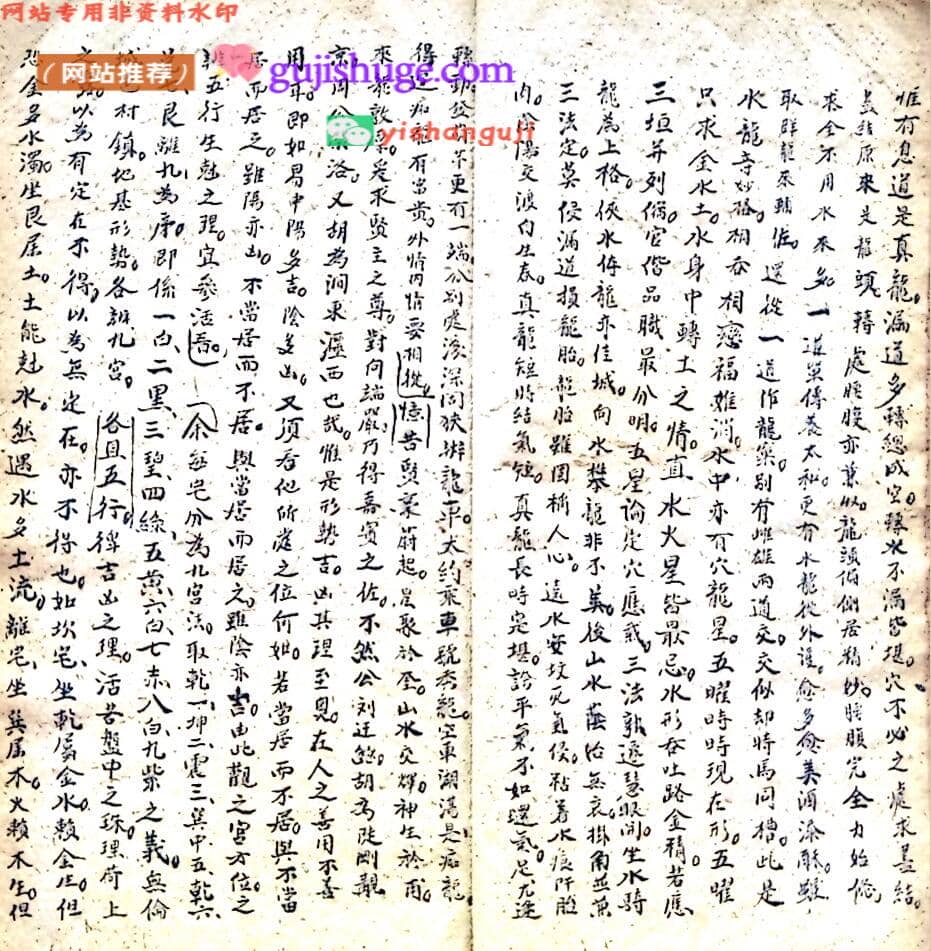 网站专用非资料水印
（网站推荐）
gujishuge.com
yishanguji
惟有息道是真龍。漏道多轉總成空。轉水不漏皆堪穴。不必之處求善結。
盘結原來是龍頭。轉處腰腹亦兼收。龍頭偏側居精妙。腰腹完全力始優。
求全不用水來多。一道單傳養太和。更有水龍從外護。愈多愈美酒添酥。雖
取群龍來輔佐。還從一道作龍樂。別有雌雄兩道交。交似却時馬同槽。此是
水龍奇妙格。相吞相 福難消。水中亦有穴龍星。五曜時時現在形。五曜
只求金水土。水身中轉土之情。直水火星皆最忌。水形吞吐路金精。若應
三垣并列 。官偕品職最分明。五星論定穴應裁。三法 遂慧眼開。坐水騎
龍為上格。俠水侍龍亦佳城。向水攀龍非不美。後山水蔭始無哀。掛角並兼
三法定。莫侵漏道損龍胎。龍胎雖固稱人心。遠水安坟死氣侵。粘着水痕阡胎
内。陰陽交渡自生春。真龍短時結氣短。真龍長時完堪誇。平氣不如還氣足。尤逢
轉 更有一端分別處。淺深闊狹辨龍車。大約乘車號秀龍。空車湖蕩是痴龍。
得 痴龍有富貴。外情内情要相從。憶昔賢豪蔚起。星聚於奎。山水交輝。神生於甫。
來龍敦厚。爰求賢主之尊。對向端嚴。乃得嘉賓之佐。不然公刘迁豳。胡為陟巘觀
京。周公 洛。又胡為澗東瀍西也哉。惟是形勢吉凶其理至見。在人之善用不善
用耳。即如易中陽多吉。陰多凶。又须看他所處之位何如。若當居而不居。與不當
居而居之。雖陽亦凶。不當居而不居。與當居而居之。雖陰亦吉。由此觀之。宮方位之
雜五行生尅之理。宜參活看。余每宅分為九宮法。取乾一、坤二、震三、巽中五、乾六
兑、艮離九為序。即係一白、二黑、三碧、四綠、五黄、六白、七赤、八白、九紫之義。無倫
城邑村鎮。地基形勢。各辨九宮。各具五行。得吉凶之理。活若盤中之珠。理荷上
之 。以為有定在不得。以為無定在。亦不得也。如坎宅。坐乾屬金水。賴金生。但
恐金多水濁。坐艮属土。土能尅水。然遇水多土流。離宅。坐巽属木。火賴木生。但